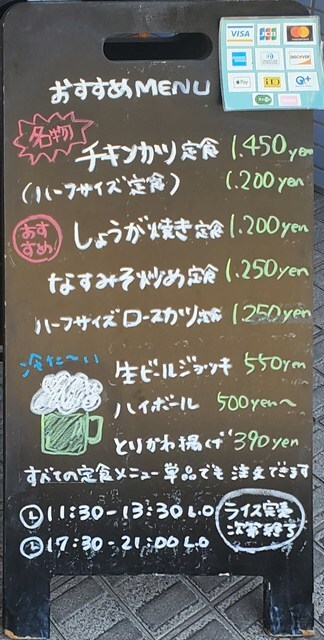 VISA JCB MasterCard
AMERICAN EXPRESS DISCOVER
Pay iD
おすすめMENU
名物
チキンカツ定食 1.450yen
(ハーフサイズ定食) 1.200yen
おすすめ
しょうが焼き定食 1.200yen
なすみそ炒め定食 1.250yen
ハーフサイズロースカツ定食 1.250yen
冷た〜い
生ビールジョッキ 550yen
ハイボール 500yen〜
とりかわ揚げ 390yen
すべての定食メニュー単品でも注文できます
11:30-13:30 L.O
17:30-21:00 L.O
ライス完売
次第終了